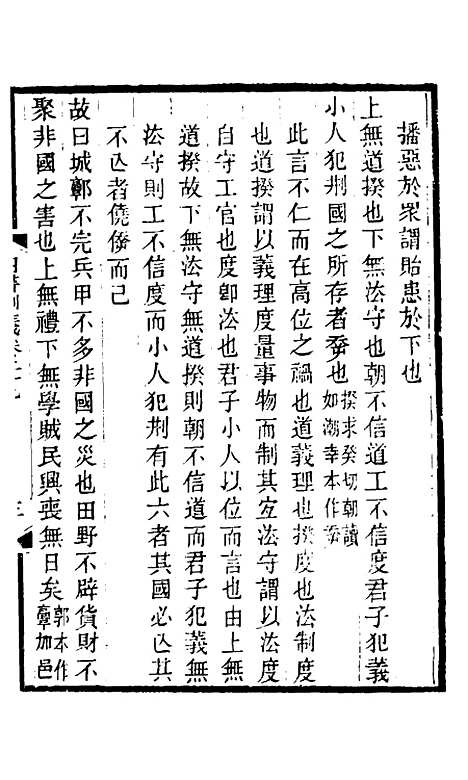 播惡於衆謂貽患於下也
上無道揆也下無法守也朝不信道工不信度君子犯義
小人犯荆國之所存者𡴘也揆求癸切朝讀如潮幸本作𡴘
此言不仁而在高位之禍也道義理也揆度也法制度
也道揆謂以義理度量事物而制其宜法守謂以法度
自守工官也度卽法也君子小人以位而言也由上無
道揆故下無法守無道揆則朝不信道而君子犯義無
法守則工不信度而小人犯荆有此六者其國必亾其
不亾者僥倖而已
故曰城𩫏不完兵甲不多非國之災也田野不辟貨財不
聚非國之害也上無禮下無學賊民興喪無日矣郭本作𩫏加邑